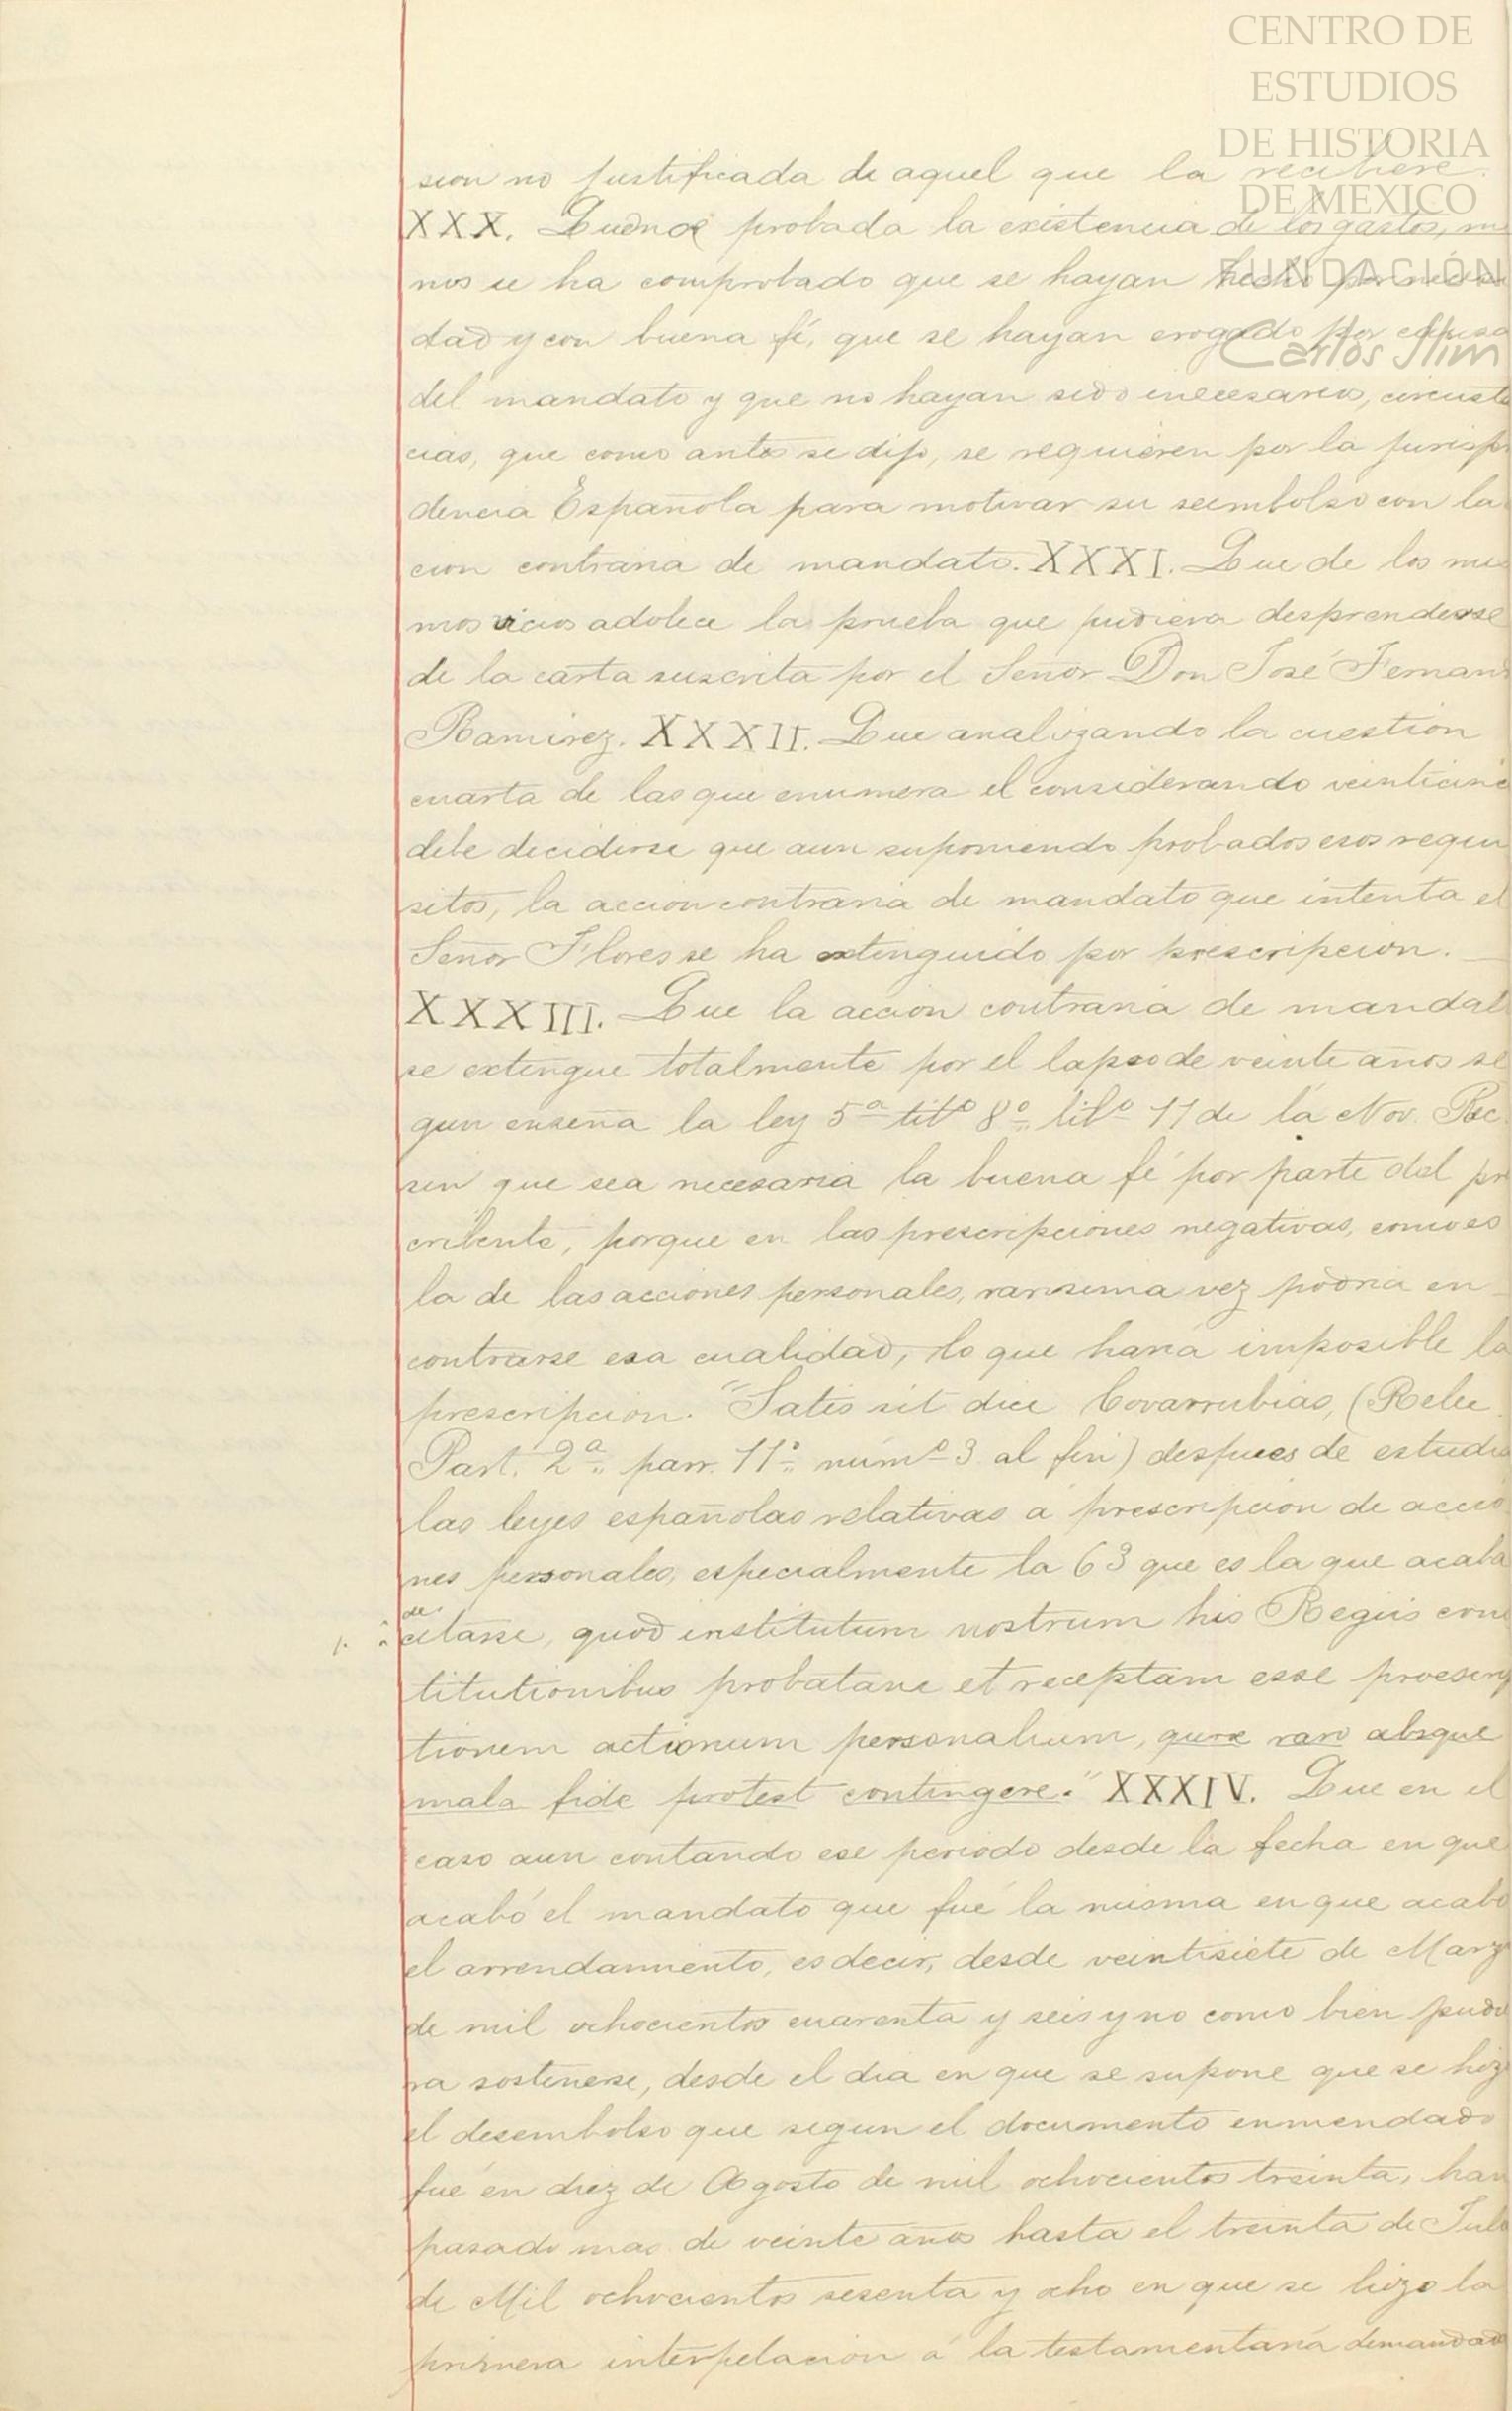 CENTRO DE
ESTUDIOS
DE HISTORIA
DE MEXICO
FUNDACIÓN
Carlos Slim
sion no justificada de aquel que la recibiere.
XXX. Que no probada la existencia de los gastos, me
nos se ha comprobado que se hayan hecho por necesi
dad y con buena fé, que se hayan erogado por causa
del mandato y que no hayan sido inecesarios, circusta
cias, que como antes se dijo, se requieren por la jurispr
dencia Española para motivar su reembolso con la
cion contraria de mandato. XXXI. Que de los mis
mos vicios adolece la prueba que pudiera desprenderse
de la carta suscrita por el Señor Don José Fernand
Ramirez. XXXII. Que analizando la cuestion
cuarta de las que enumera el considerando veinticinc
debe decidirse que aun suponiendo probados esos requi
sitos, la accion contraria de mandato que intenta el
Señor Flores se ha extinguido por prescripcion.
XXXIII. Que la accion contraria de mandat
se extingue totalmente por el lapso de veinte años se
gun enseña la ley 5ª titº 8º libº 11 de la Nov. Rec.
sin que sea necesaria la buena fé por parte del pr
cribente, porque en las prescripciones negativas, como es
la de las acciones personales, rarisima vez podria en
contrarse esa cualidad, lo que haria imposible la
prescripcion. "Satis sit dice Covarrubias, (Relec.
Part. 2ª parr. 11º númº 3 al fin) despues de estudia
las leyes españolas relativas á prescripcion de accio
nes personales, especialmente la 63 que es la que acaba
de
citarse, quod institutum nostrum his Regiis cons
titutionibus probatane et receptam esse proescrip
tionem actionum personalium, quae raro absque
mala fide protest contingere." XXXIV. Que en el
caso aun contando ese periodo desde la fecha en que
acabó el mandato que fué la misma en que acabó
el arrendamiento, es decir, desde veintisiete de Marzo
de mil ochocientos cuarenta y seis y no como bien pudie
ra sostenerse, desde el dia en que se supone que se hizo
el desembolso que segun el documento enmendado
fué en diez de Agosto de mil ochocientos treinta, han
pasado mas de veinte años hasta el treinta de Julio
de Mil ochocientos sesenta y ocho en que se hizo la
primera interpelacion á la testamentaria demandad